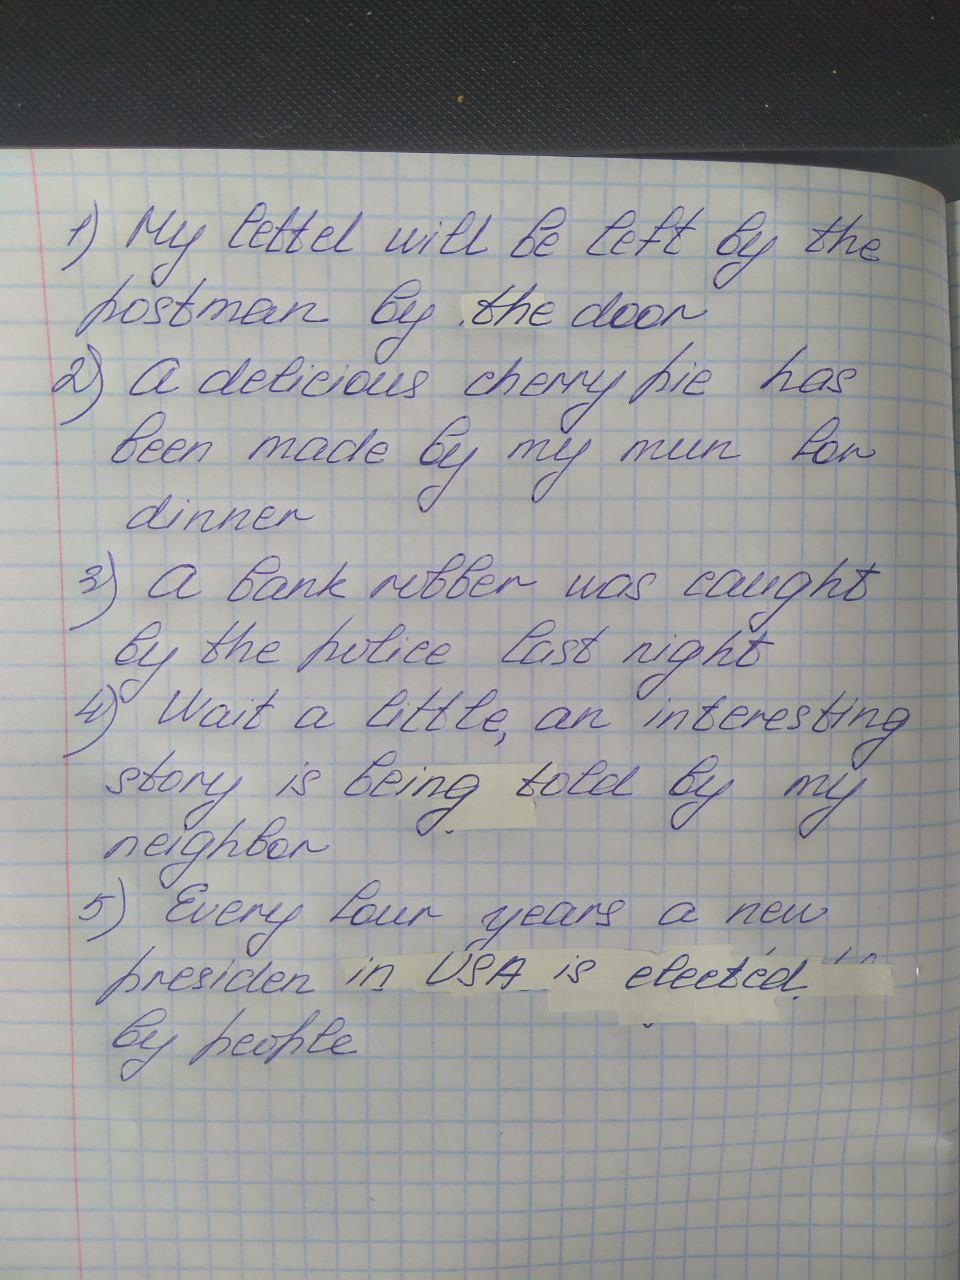 1) My lettel will be left by the
postman by the door
2) A delicious cherry pie has
been made by my mun for
dinner
3) A bank robber was caught
by the police last night
4) Wait a little, an interesting
story is being told by my
neighbor
5) Every four years a new
presiden in USA is elected
by people